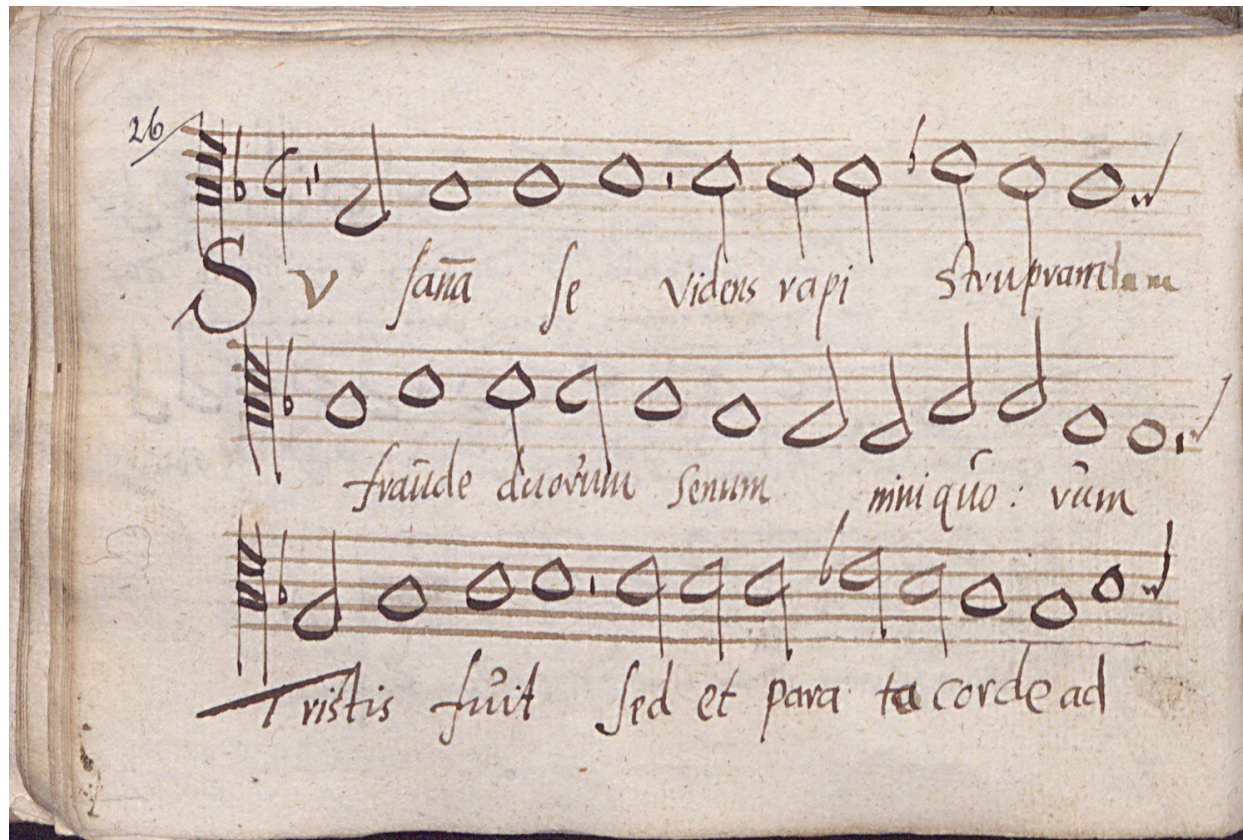 26
SV sanā se videns rapi Struprandam
fraude duorum senum iniquo: rum
Tristis fuit sed et para ta corde ad